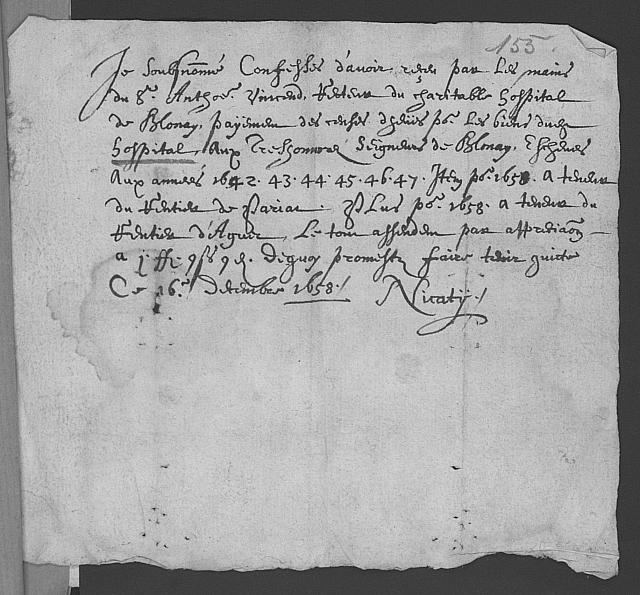 155.
Je soubsnomé Confesses d'avoir reçeu par Les mains
du Sr. Anthoe. Vincend, Recteur du charitable hospital
de Blonay, payemen des censes dheües pr. Les biens dudt
hospital, Aux Treshonorez Seigneurs de Blonay, Escheues
Aux années 1642. 43. 44. 45. 46. 47. Item pr. 1658. A teneur
du Rentier de PLus pr. 1658. A teneur du
Rentier d' Le tout assendem par
A de quoy promestz faire tenir quicte
Ce 16e. decembre 1658./ Nicaty./